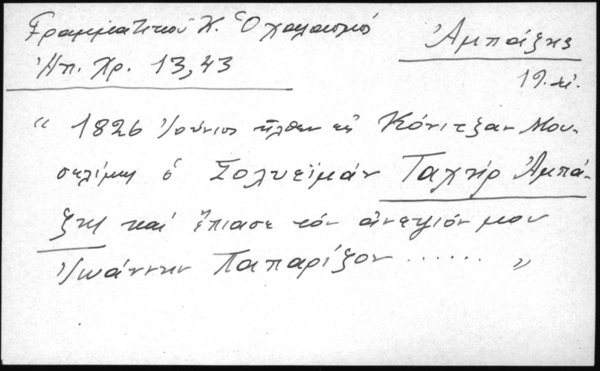 Γραμματικοῦ Κ. Ὁ χαλασμός
Ἠπ. Χρ. 13, 43
Ἀμπάζης
19. αἰ.
“ 1826 Ἰούνιος ἦλθεν εἰς Κόνιτζαν Μου-
σελίμης ὁ Σολυεϊμάν Ταχήρ Ἀμπά-
ζης καί ἔπιασε τόν ἀνεψιόν μου
Ἰωάννην Παπαρίζον ...... „